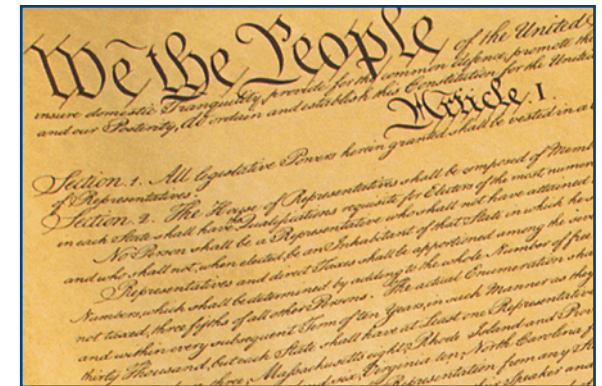 We the People of the United
insure domestic Tranquility, provide for the common defence, promote the
and our Posterity, do ordain and establish this Constitution for the United
Article. I.
Section. 1. All legislative Powers herein granted shall be vested in a
of Representatives.
Section. 2. The House of Representatives shall be composed of Memb
in each State shall have Qualifications requisite for Electors of the most numer
No Person shall be a Representative who shall not have attained
and who shall not, when elected, be an Inhabitant of that State in which he s
Representatives and direct Taxes shall be apportioned among the seve
Numbers, which shall be determined by adding to the whole Number of free
not taxed, three fifths of all other Persons. The actual Enumeration sha
and within every subsequent Term of ten Years, in such Manner as they
thirty Thousand, but each State shall have at Least one Representative
three, Massachusetts eight, Rhode Island and Pro
six, Virginia ten, North Carolina f
Representation from any St
Speaker and